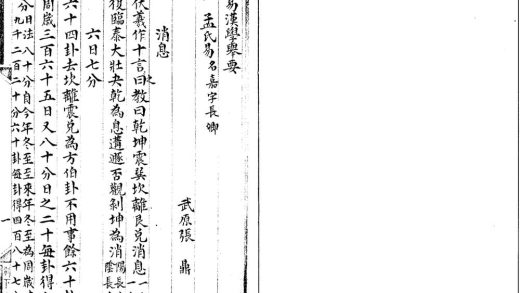 易漢學舉要
孟氏易名嘉字長卿
武原張鼎
消息
伏羲作十言之教曰乾坤震巽坎離艮兌消息
復臨泰大壯夬乾為息遘遯否觀剝坤為消陽長陰長
六日七分
六十四卦去坎離震兌為方伯卦不用事餘六十
周歲三百六十五日又八十分日之二十每卦得
分日法八十分自今年冬至至來年冬至為周歲
分九千二百二十分六十卦每卦得四百八十七
一